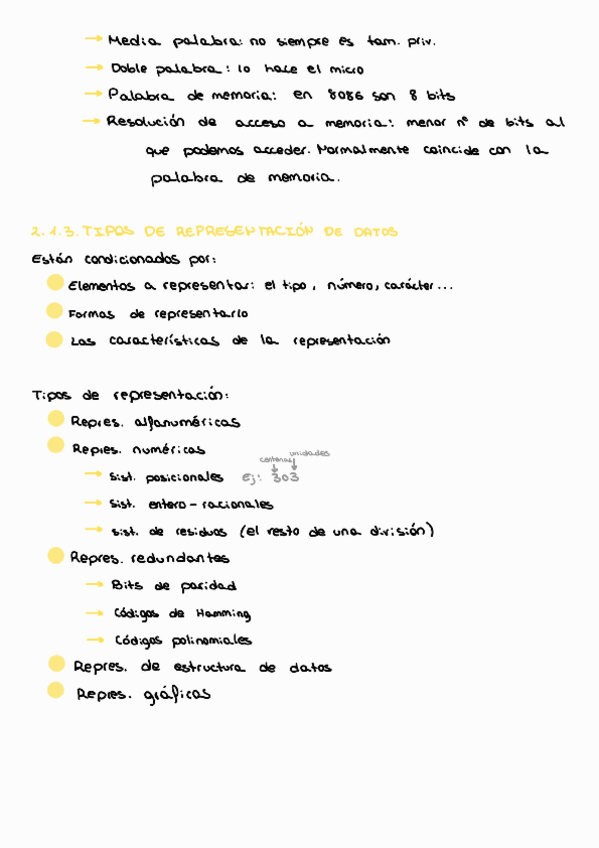 → Media palabra: no siempre es tam. priv.
→ Doble palabra: lo hace el micro
→ Palabra de memoria: en 8086 son 8 bits
→ Resolución de acceso a memoria: menor nº de bits al
que podemos acceder. Normalmente coincide con la
palabra de memoria.
2.1.3. TIPOS DE REPRESENTACIÓN DE DATOS
Están condicionados por:
Elementos a representar: el tipo, número, carácter...
Formas de representarlo
Las características de la representación
Tipos de representación:
Repres. alfanuméricas
Repres. numéricas
centenas unidades
→ Sist. posicionales Ej: 303
→ Sist. entero-racionales
→ sist. de residuos (el resto de una división)
Repres. redundantes
→ Bits de paridad
→ Códigos de Hamming
→ Códigos polinomiales
Repres. de estructura de datos
Repres. gráficas